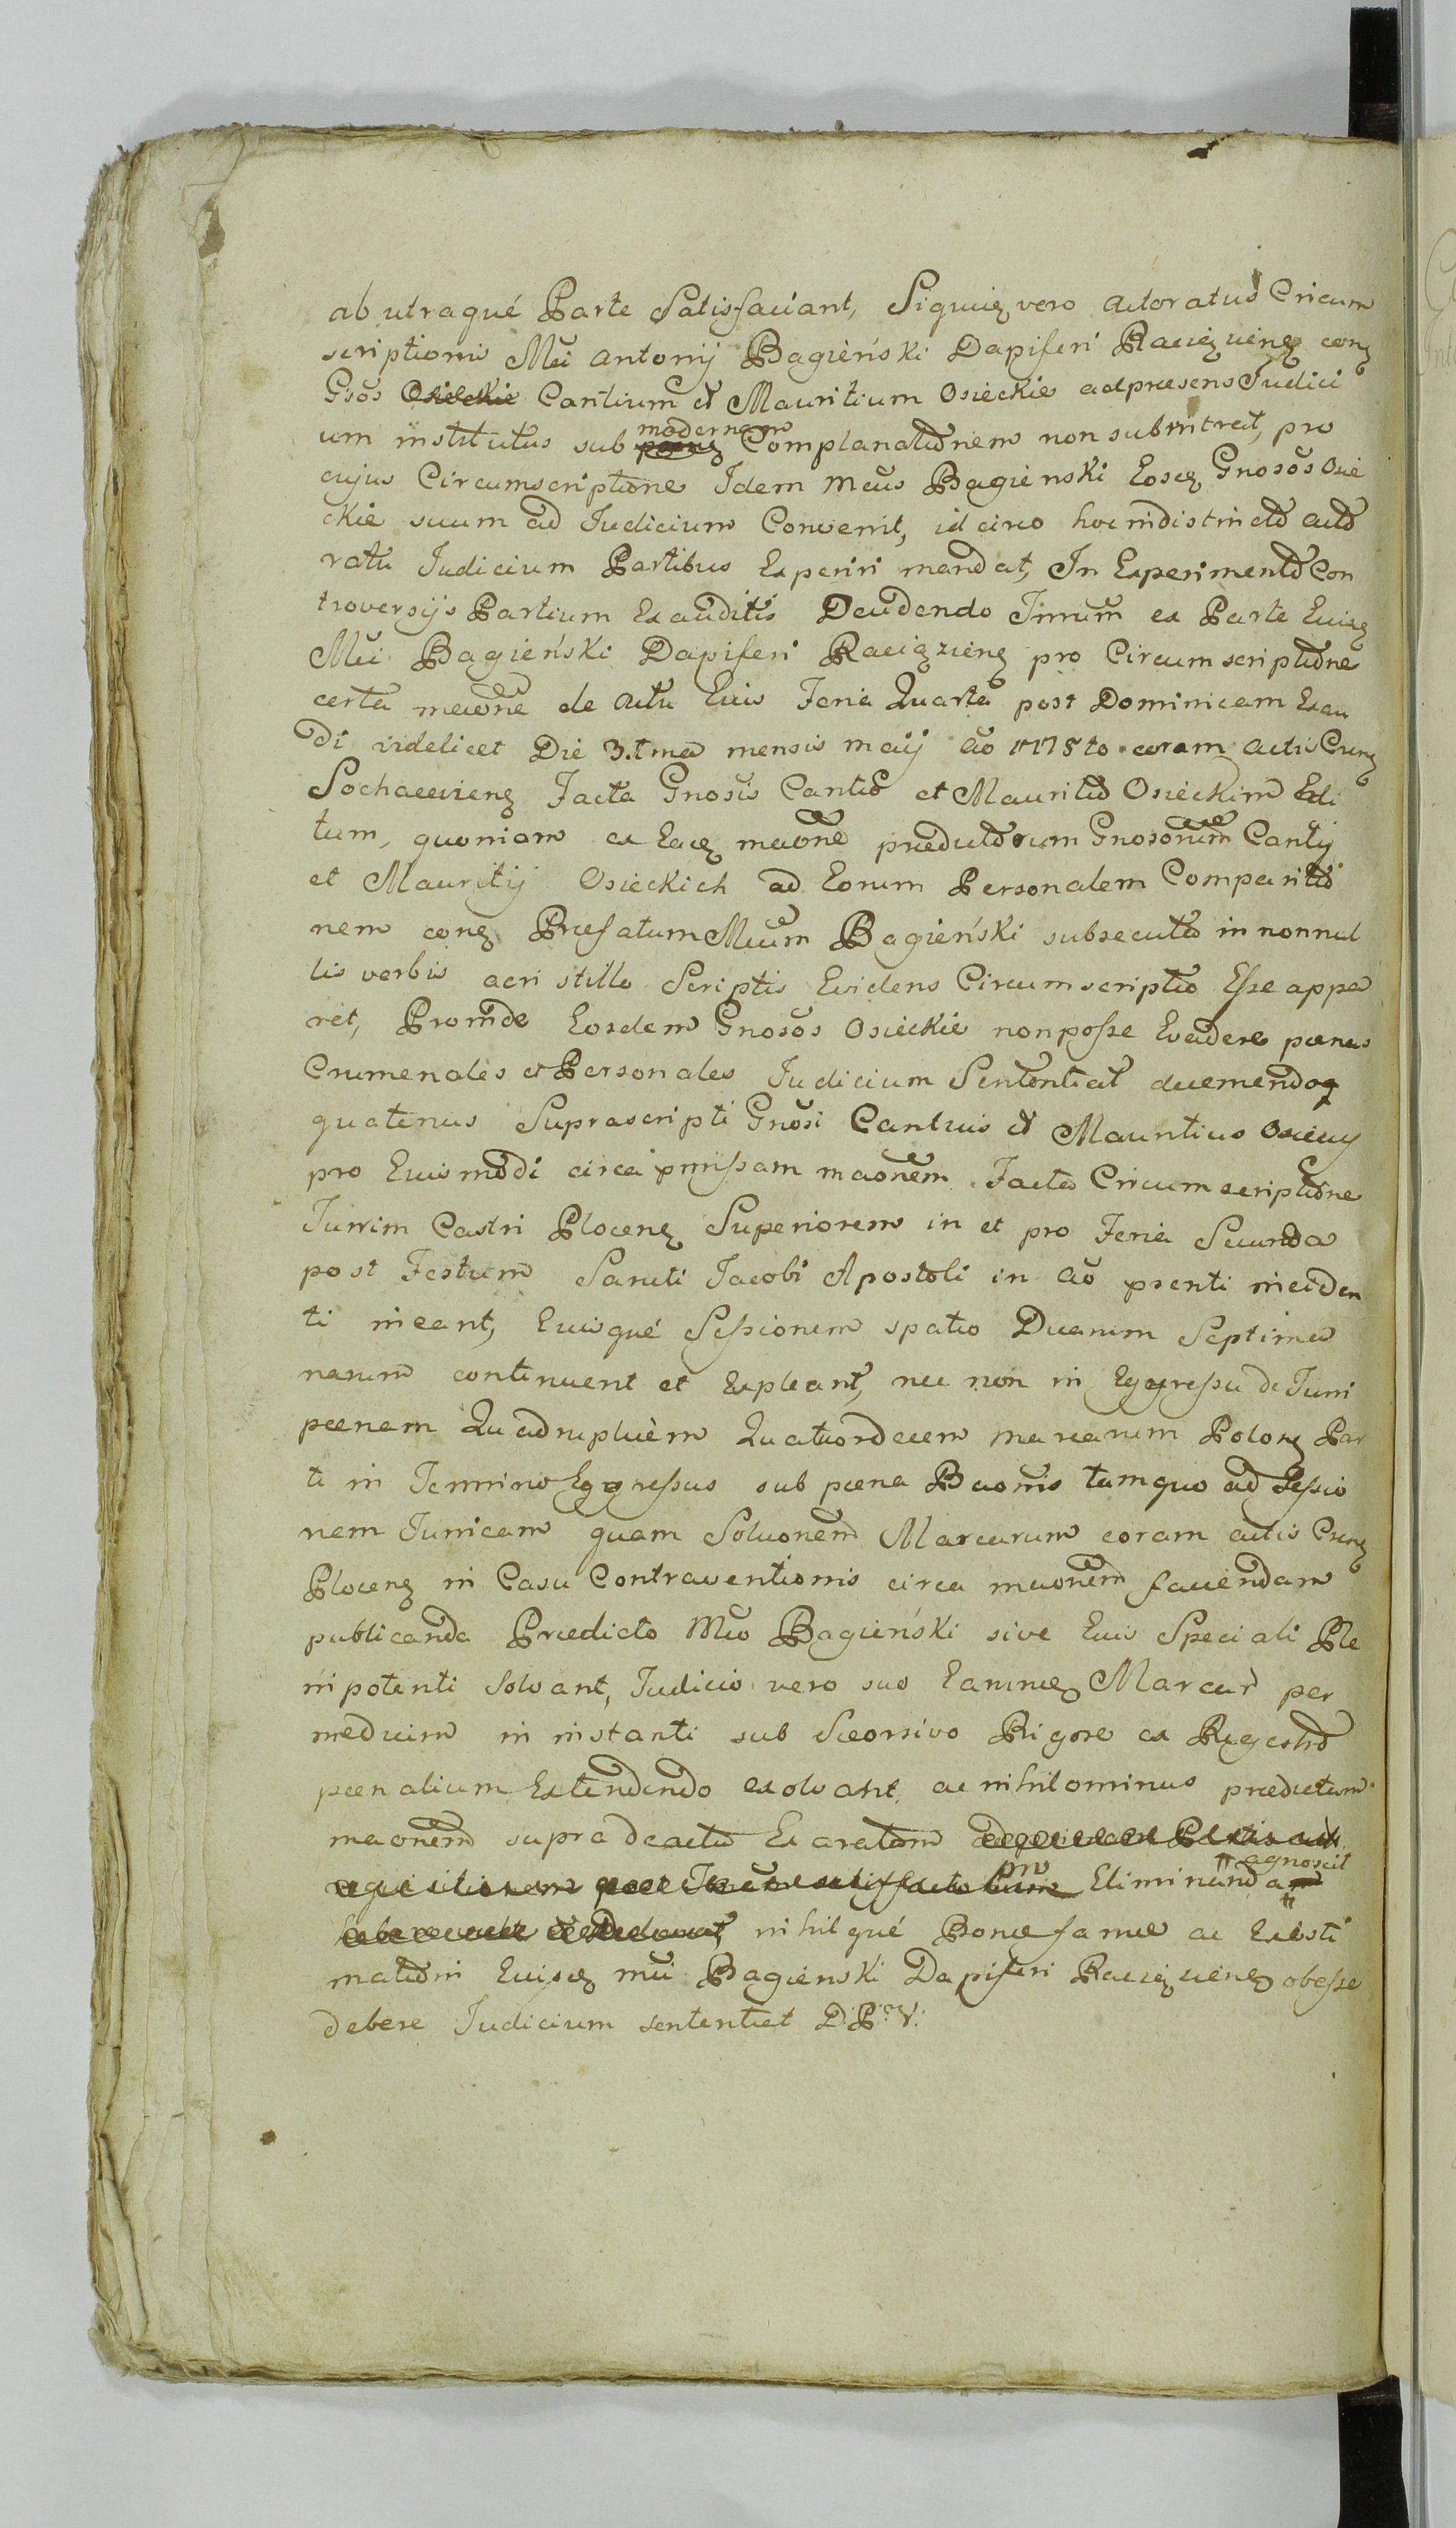 ab utraqué Parte Satisfaciant, Siquidem vero actoratus Circum
scriptionis Mci Antonij Bagieński Dapiferi Raciążien con
Gsos Osieckie Cantium et Mauritium Osieckie ad praesens Judici
um institutus sub modernam Complanationem non subintrat, pro
cujus Circumscriptione Idem Mcus Bagienski Eosd Gnosos Osie
ckie suum ad Judicium Convenit, id circo hoc indistincto acto
ratu Judicium Partibus Experiri mandat, In Experimento Con
troversijs Partium Exauditis Decidendo Imum ex Parte Euisd
Mci Bagieński Dapiferi Raciązien pro Circumscriptione
certa mcaone de Actu Euis Feria Quarta post Dominicam Exau
di videlicet Die 31tma mensis maij ao 1775to coram actis Cren
Sochaceviens Facta Gnosis Cantio et Mauritio Osieckim Edi
tum, quoniam ex Eade mcaone praedictorum Gnosorum Cantij
et Mauritij Osieckich ad Eorum Personalem Comparitio
nem con Praefatum Mcum Bagieński subsecuta in nonnul
lis verbis acri stillo Scriptis Evidens Circumscriptio Esse appa
ret, Proinde Eosdem Gnosos Osieckie non posse Evadere paenas
Crumenales et Personales Judicium Sententiat decernendoq
quatenus Suprascripti Gnosi Cantius et Mauritius Osieccy
pro Euismodi circa pmissam mcaonem Facta Circumscriptione
Turrim Castri Plocen Superiorem in et pro Feria Secunda
post Festum Sancti Jacobi Apostoli in ao psenti inciden
ti ineant, Euisqué Sessionem spatio Duarum Septima
narum continuent et Expleant, nec non in Eggressu de Turri
paenam Quadruplicem Quatuordecem marcarum Polon Par
ti in Termino Eggressus sub paena Bnaonis tam quo ad Sessio
nem Turricam quam Soluonem Marcarum coram actis Cren
Plocen in Casu Contraventionis circa mcaonem faciendam
publicanda Praedicto Mco Bagieński sive Euis Speciali Ple
nipotenti Solvant, Judicio vero suo Earumd Marcar per
medium in instanti sub Sceorsivo Rigore ex Regestro
paenalium Extendendo exolvant, ac nihilominus praedictam
mcaonem supra de actu Exaratam
pro Eliminanda agnoscit
nihilqué Bonae famae ac Existi
mationi Euisd mci Bagienski Dapiferi Raciązien obesse
debere Judicium sententiat D.P.V.